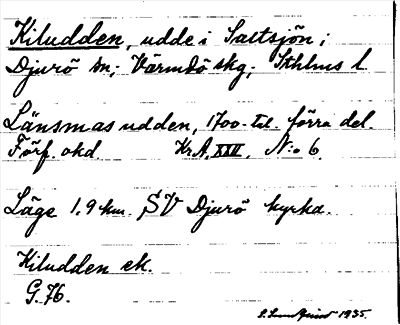 Kiludden, udde i Saltsjön;
Djurö sn; Värmdö skg; Sthlms l
Länsmasudden, 1700-tal. förra del.
Förf. okd. Kr.A. XXII. N:o 6.
Läge 1.9 km. SV Djurö kyrka.
Kiludden ek.
G.76.
1935.